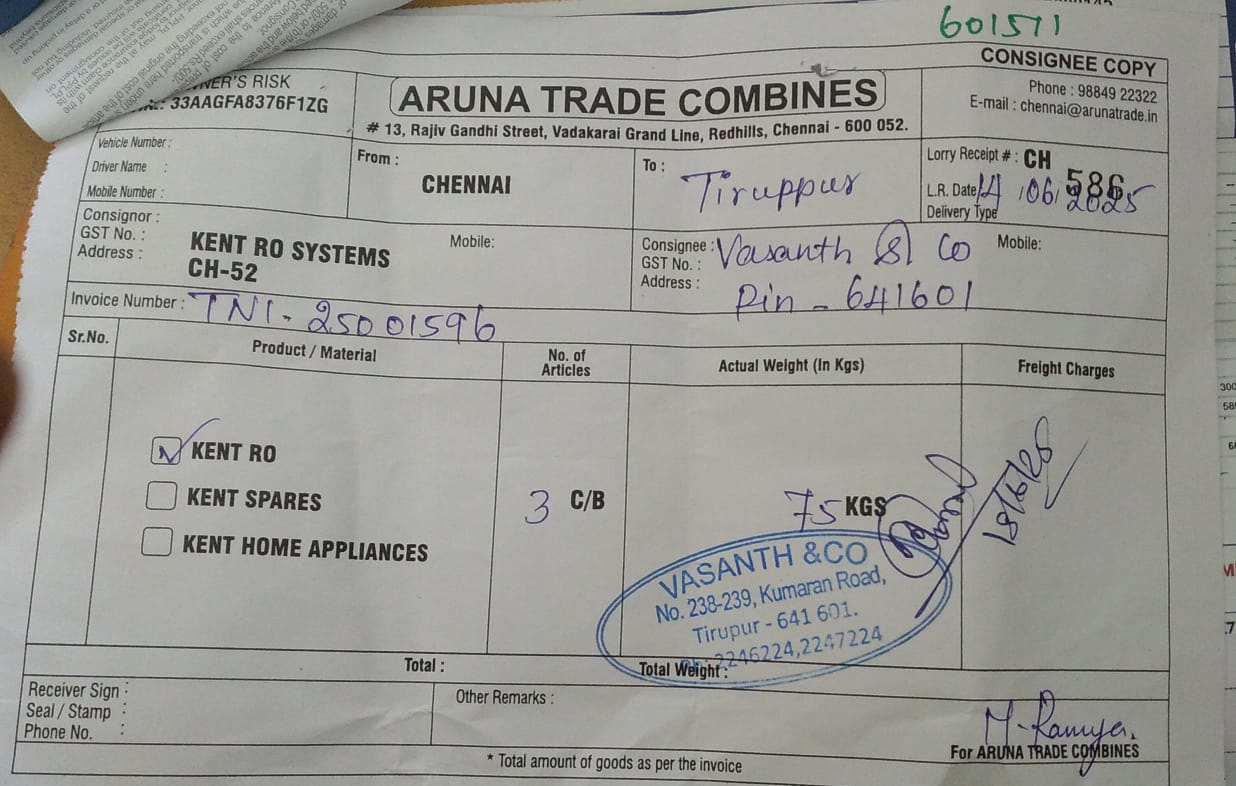 601571
CONSIGNEE COPY
OWNER'S RISK
33AAGFA8376F1ZG
ARUNA TRADE COMBINES
# 13, Rajiv Gandhi Street, Vadakarai Grand Line, Redhills, Chennai - 600 052.
Phone : 98849 22322
E-mail : chennai@arunatrade.in
Vehicle Number :
Driver Name :
Mobile Number :
From :
CHENNAI
To :
Tiruppur
Lorry Receipt # : CH 586
L.R. Date 14/06/2025
Delivery Type
Consignor :
GST No. :
Address :
KENT RO SYSTEMS
CH-52
Mobile:
Consignee : Vasanth & Co
GST No. :
Address : Pin - 641601
Mobile:
Invoice Number : TN1-25001596
Sr.No.
Product / Material
No. of Articles
Actual Weight (In Kgs)
Freight Charges
KENT RO
KENT SPARES
KENT HOME APPLIANCES
3 C/B
75 KGS
18/6/25
VASANTH &CO
No. 238-239, Kumaran Road,
Tirupur - 641 601.
2246224,2247224
Total :
Total Weight :
Receiver Sign :
Seal / Stamp :
Phone No. :
Other Remarks :
M-Ramya.
For ARUNA TRADE COMBINES
* Total amount of goods as per the invoice